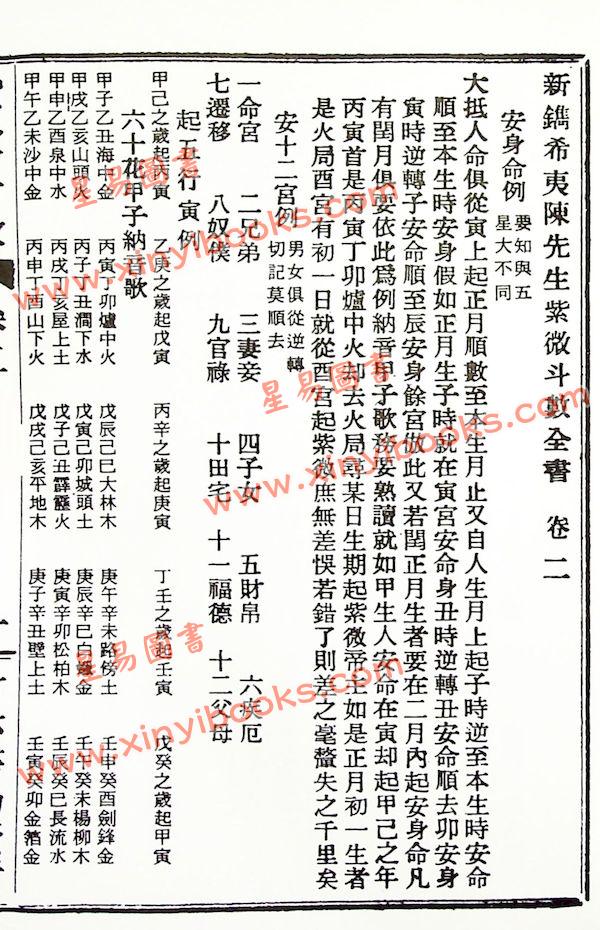 新鐫希夷陳先生紫微斗數全書 卷二
安身命例 要知與五
星大不同
大抵人命俱從寅上起正月順數至本生月止又自人生月上起子時逆至本生時安命
順至本生時安身假如正月生子時就在寅宮安命身丑時逆轉丑安命順去卯安身
寅時逆轉子安命順至辰安身餘宮倣此又若閏正月生者要在二月內起安身命凡
有閏月俱要依此為例納音甲子歌務要熟讀就如甲生人安命在寅却起甲己之年
丙寅首是丙寅丁卯爐中火却去火局尋某日生期起紫微帝主如是正月初一生者
是火局酉宮有初一日就從酉宮起紫微庶無差悞若錯了則差之毫釐失之千里矣
安十二宮例 男女俱從逆轉
切記莫順去
一命宮 二兄弟 三妻妾 四子女 五財帛 六疾厄
七遷移 八奴僕 九官祿 十田宅 十一福德 十二父母
起五行寅例
甲己之歲起丙寅 乙庚之歲起戊寅 丙辛之歲起庚寅 丁壬之歲起壬寅 戊癸之歲起甲寅
六十花甲子納音歌
甲子乙丑海中金 丙寅丁卯爐中火 戊辰己巳大林木 庚午辛未路傍土 壬申癸酉劍鋒金
甲戌乙亥山頭火 丙子丁丑澗下水 戊寅己卯城頭土 庚辰辛巳白鑞金 壬午癸未楊柳木
甲申乙酉泉中水 丙戌丁亥屋上土 戊子己丑霹靂火 庚寅辛卯松柏木 壬辰癸巳長流水
甲午乙未沙中金 丙申丁酉山下火 戊戌己亥平地木 庚子辛丑壁上土 壬寅癸卯金箔金
星易圖書
www.xinyibooks.com
星易圖書
www.xinyibooks.com
星易圖書
www.xinyibooks.com
星易圖書
www.xinyibooks.com